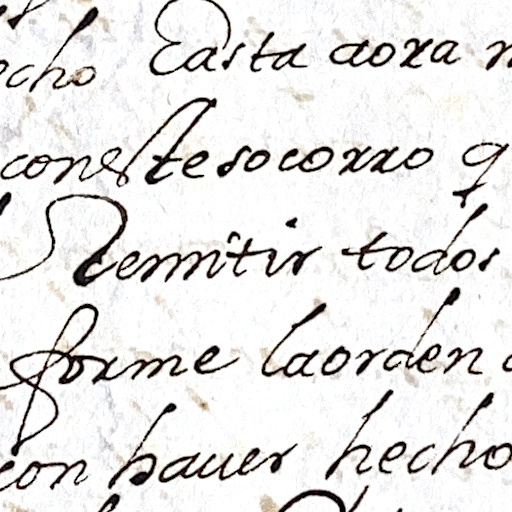 echo hasta aora
con este socorro q
Remitir todos
forme la orden
con hauer hecho